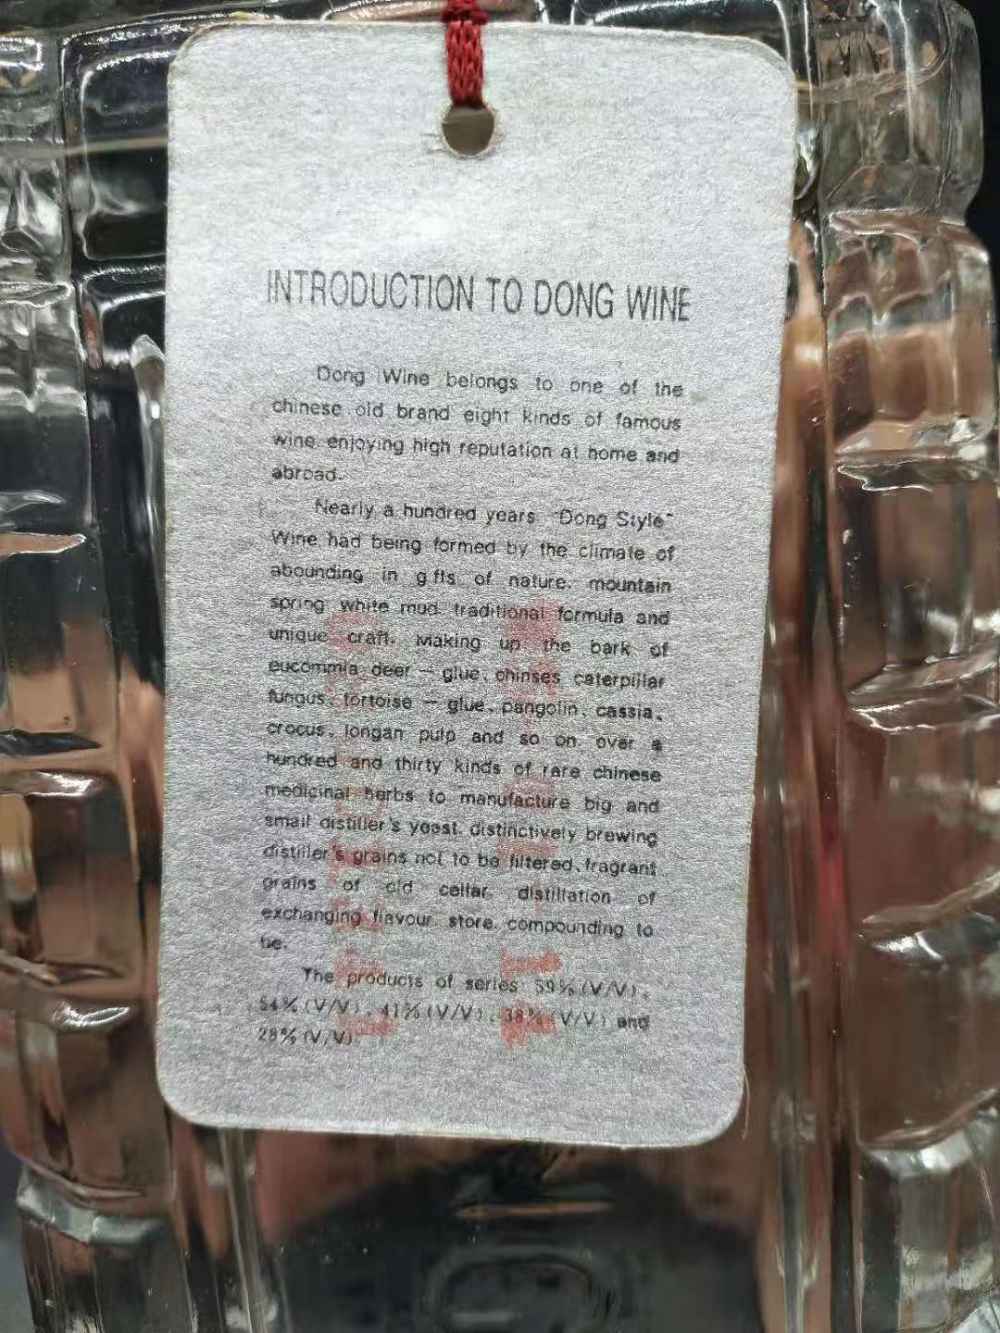 INTRODUCTION TO DONG WINE
Dong Wine belongs to one of the
chinese old brand eight kinds of famous
wine enjoying high reputation at home and
abroad.
Nearly a hundred years "Dong Style"
Wine had being formed by the climate of
abounding in gfts of nature. mountain
spring white mud. traditional formula and
unique craft. Making up the bark of
eucommia deer — glue. chinses caterpillar
fungus. tortoise — glue. pangolin. cassia.
crocus. longan pulp and so on. over a
hundred and thirty kinds of rare chinese
medicinal herbs to manufacture big and
small distiller's yeast. distinctively brewing
distiller's grains not to be filtered. fragrant
grains of old cellar. distillation of
exchanging flavour. store. compounding to
be.
The products of series 59%(V/V).
54%(V/V). 41%(V/V). 38%(V/V) and
28%(V/V).